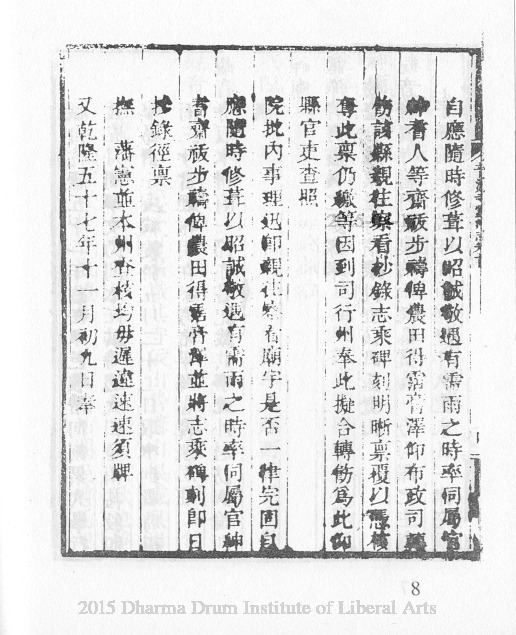 自應隨時修葺以昭誠敬遇有需雨之時率同屬官
紳耆人等齋祓步禱俾農田得霑膏澤仰布政司轉
飭該縣親往察看抄錄志乘碑刻明晰稟覆以憑核
奪此稟仍繳等因到司行州奉此擬合轉飭為此仰
縣官吏查照
院批內事理迅即親往察看廟宇是否一律完固自
應隨時修葺以昭誠敬遇有需雨之時率同屬官紳
耆齋祓步禱俾農田得霑膏澤並將志乘碑刻即日
抄錄徑稟
撫 藩憲並本州查核均毋遲違速速須牌
又乾隆五十七年十一月初九日奉
8
2015 Dharma Drum Institute of Liberal Arts